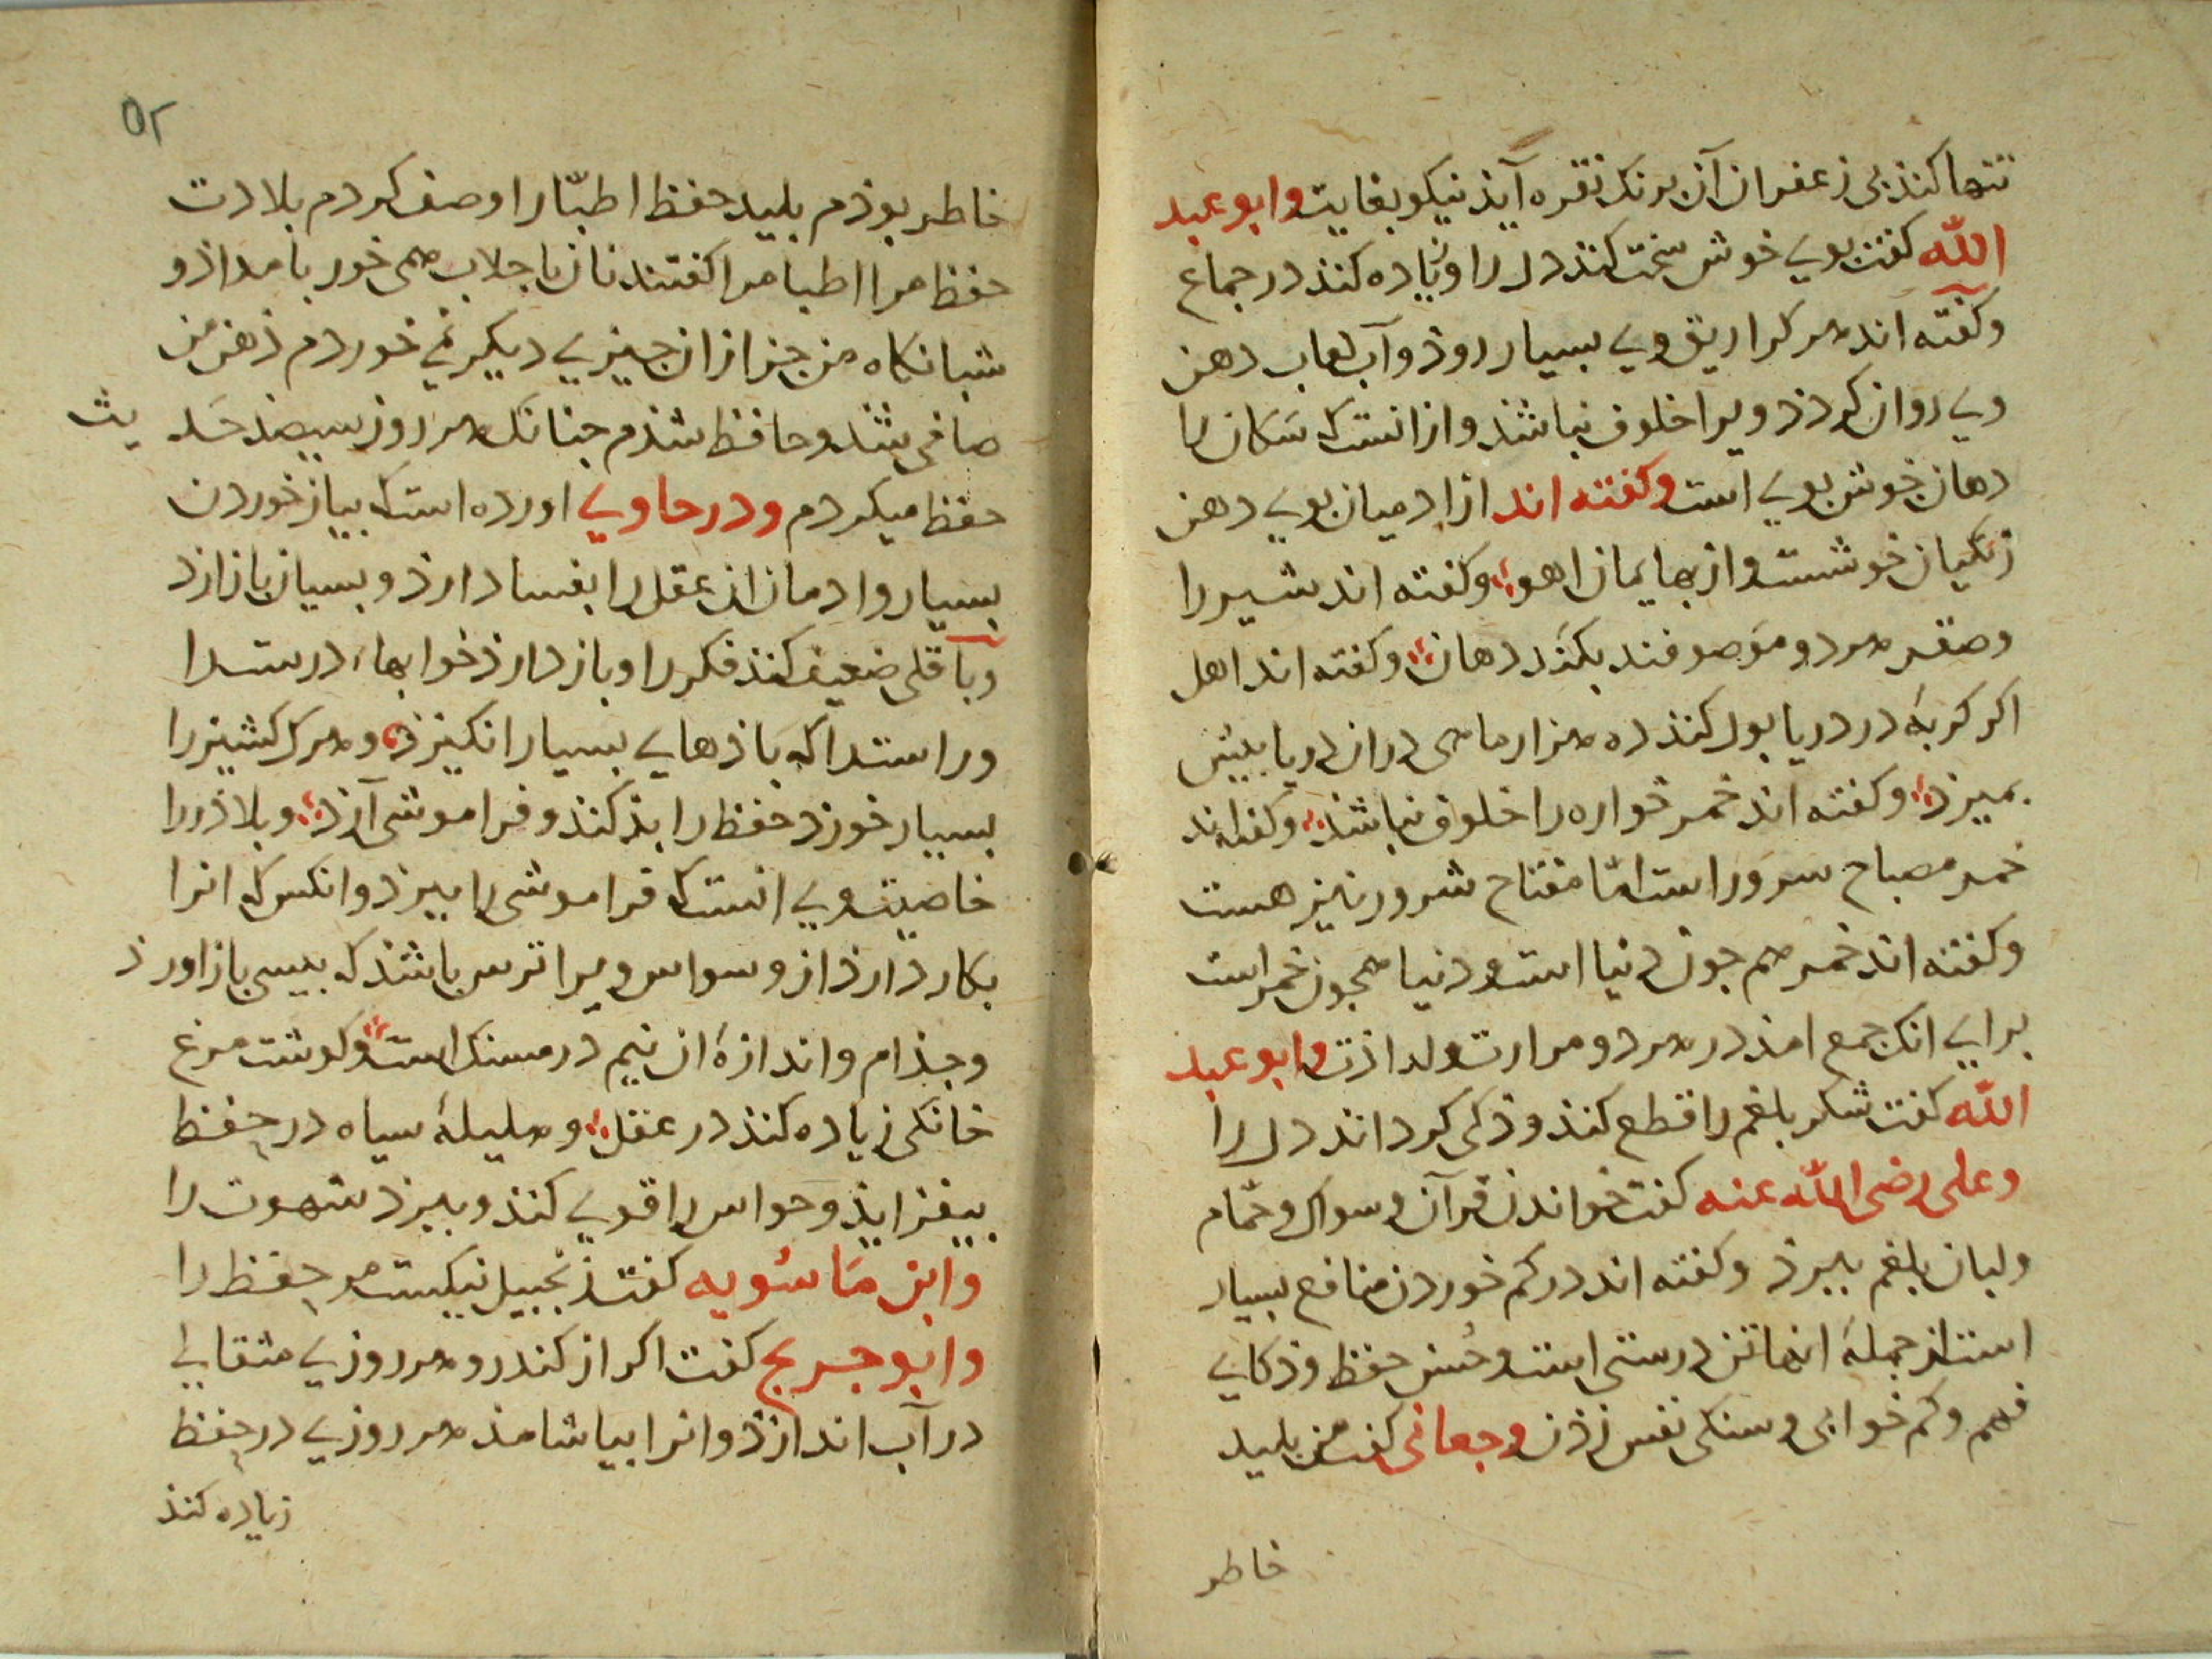 تنها کنذ بی زعفران آن برنک نقره آیذ نیکو بغایت وابو عبد
الله کفت بوی خوش سخت کنذ دل را وزیاده کنذ در جماع
وکفته اند هر کرا ریق وی بسیار روذ وآب لعاب دهن
وی روان کردذ ویرا خلوف نباشذ وازانست که سکان را
دهان خوش بوی است وکفته اند از ادمیان بوی دهن
زنکیان خوشست واز بهایمان اهو وکفته اند شیر را
وصقر هر دو موصوفند بکند دهان وکفته اند اهل
اکر کربهٔ در دریا بول کنذ ده هزار ماهی دران دریا بیش
بمیرذ وکفته اند خمر خواره را خلوف نباشذ وکفته اند
خمر مصباح سرور است امّا مفتاح شرور نیز هست
وکفته اند خمر هم جون دنیا است ودنیا همجون خمر است
برای انک جمع امذ در هر دو مرارت ولذاذت وابو عبد
الله کفت شکر بلغم را قطع کنذ وذکی کرداند دل را
وعلی رضی الله عنه کفت خواندن قرآن وسواک وحمّام
ولبان بلغم ببرذ وکفته اند در کم خوردن منافع بسیار
است از جملهٔ انها تن درستی است وحُسن حفظ وذکای
فهم وکم خوابی وسبکی نفس زذن وجعانی کفت من بلید
خاطر
٥٢
خاطر بوذم بلید حفظ اطبّا را وصف کردم بلادت
حفظ مرا اطبا مرا کفتند نان با جلاب همی خور بامداذ و
شبانکاه من جز از ان جیزی دیکر نمی خوردم ذهن من
صافی شد وحافظ شذم جنانک هر روز سیصذ حدیث
حفظ میکردم ودر حاوی اورده است که بیاز خوردن
بسیار وادمان ان عقل را بفساد ارذ وبسیان باز ارذ
وباقلی ضعیف کنذ فکر را وباز دارذ خوابهاء درست را
وراست را که باذهای بسیار انکیزذ وهر که کشنیز را
بسیار خورذ حفظ را بذ کند وفراموشی آرذ وبلاذر را
خاصیت وی انست که فراموشی را ببرذ وانکس که انرا
بکار دارذ از وسواس ویرا ترس باشذ که بیسی باز اورذ
وجذام واندازهٔ ان نیم درمسنک است وکوشت مرغ
خانکی زیاده کنذ در عقل وهلیلهٔ سیاه در حفظ
بیفزایذ وحواس را قوی کنذ وببرذ شهوت را
وابن ماسُویه کفت زنجبیل نیکست مر حفظ را
وابو جریج کفت اکر از کندرو هر روزی مثقالی
در آب اندازذ وانرا بیاشامذ هر روزی در حفظ
زیاده کنذ